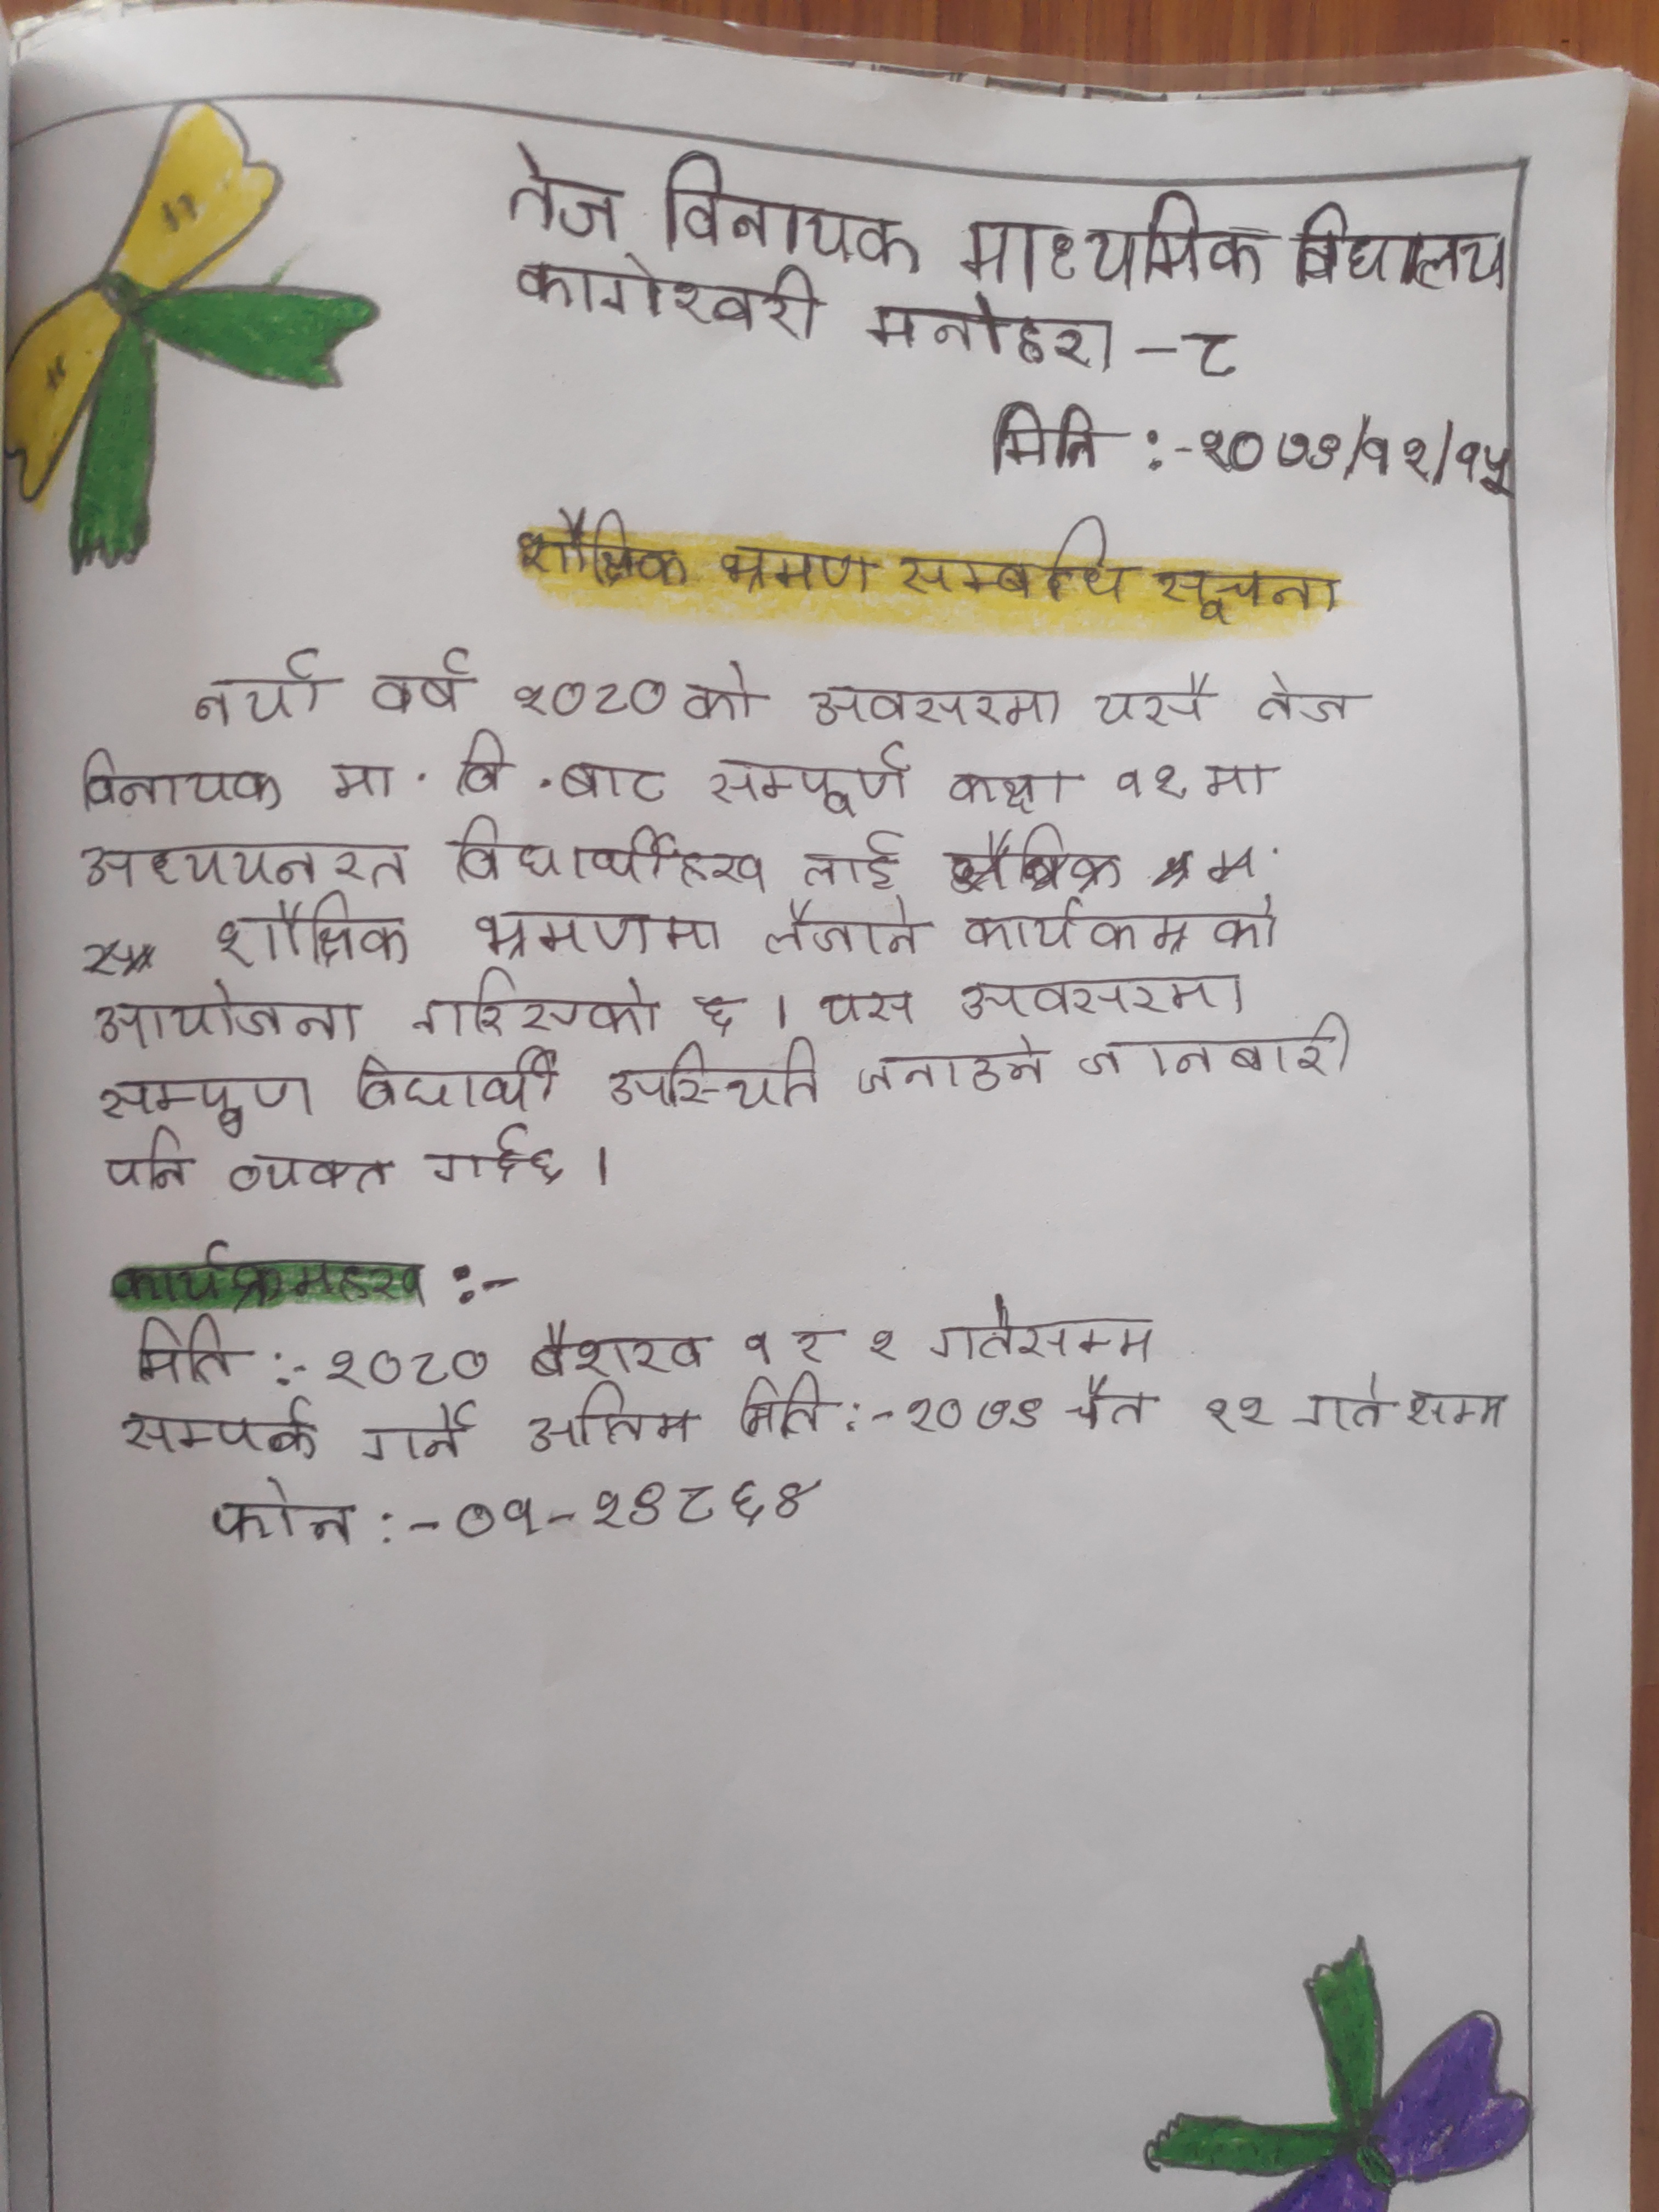 तेज विनायक माध्यमिक विद्यालय
कागेश्वरी मनोहरा -८
मिति :- २०७९/१२/१५
शैक्षिक भ्रमण सम्बन्धि सूचना
नयाँ वर्ष २०८०को अवसरमा यसै तेज
विनायक मा. वि. बाट सम्पूर्ण कक्षा १२ मा
अध्ययनरत विद्यार्थीहरु लाई
शैक्षिक भ्रमणमा लैजाने कार्यक्रमको
आयोजना गरिएको छ । यस अवसरमा
सम्पूण विद्यार्थी उपस्थिति जनाउने जानबारी
पनि व्यक्त गर्छछ ।
कार्यक्रमहरु :-
मिति :- २०८० बैशाख १ र २ गतेसम्म
सम्पर्क गर्ने अन्तिम मिति :- २०७९ चैत २२ गते सम्म
फोन :- ०१- २९८६४